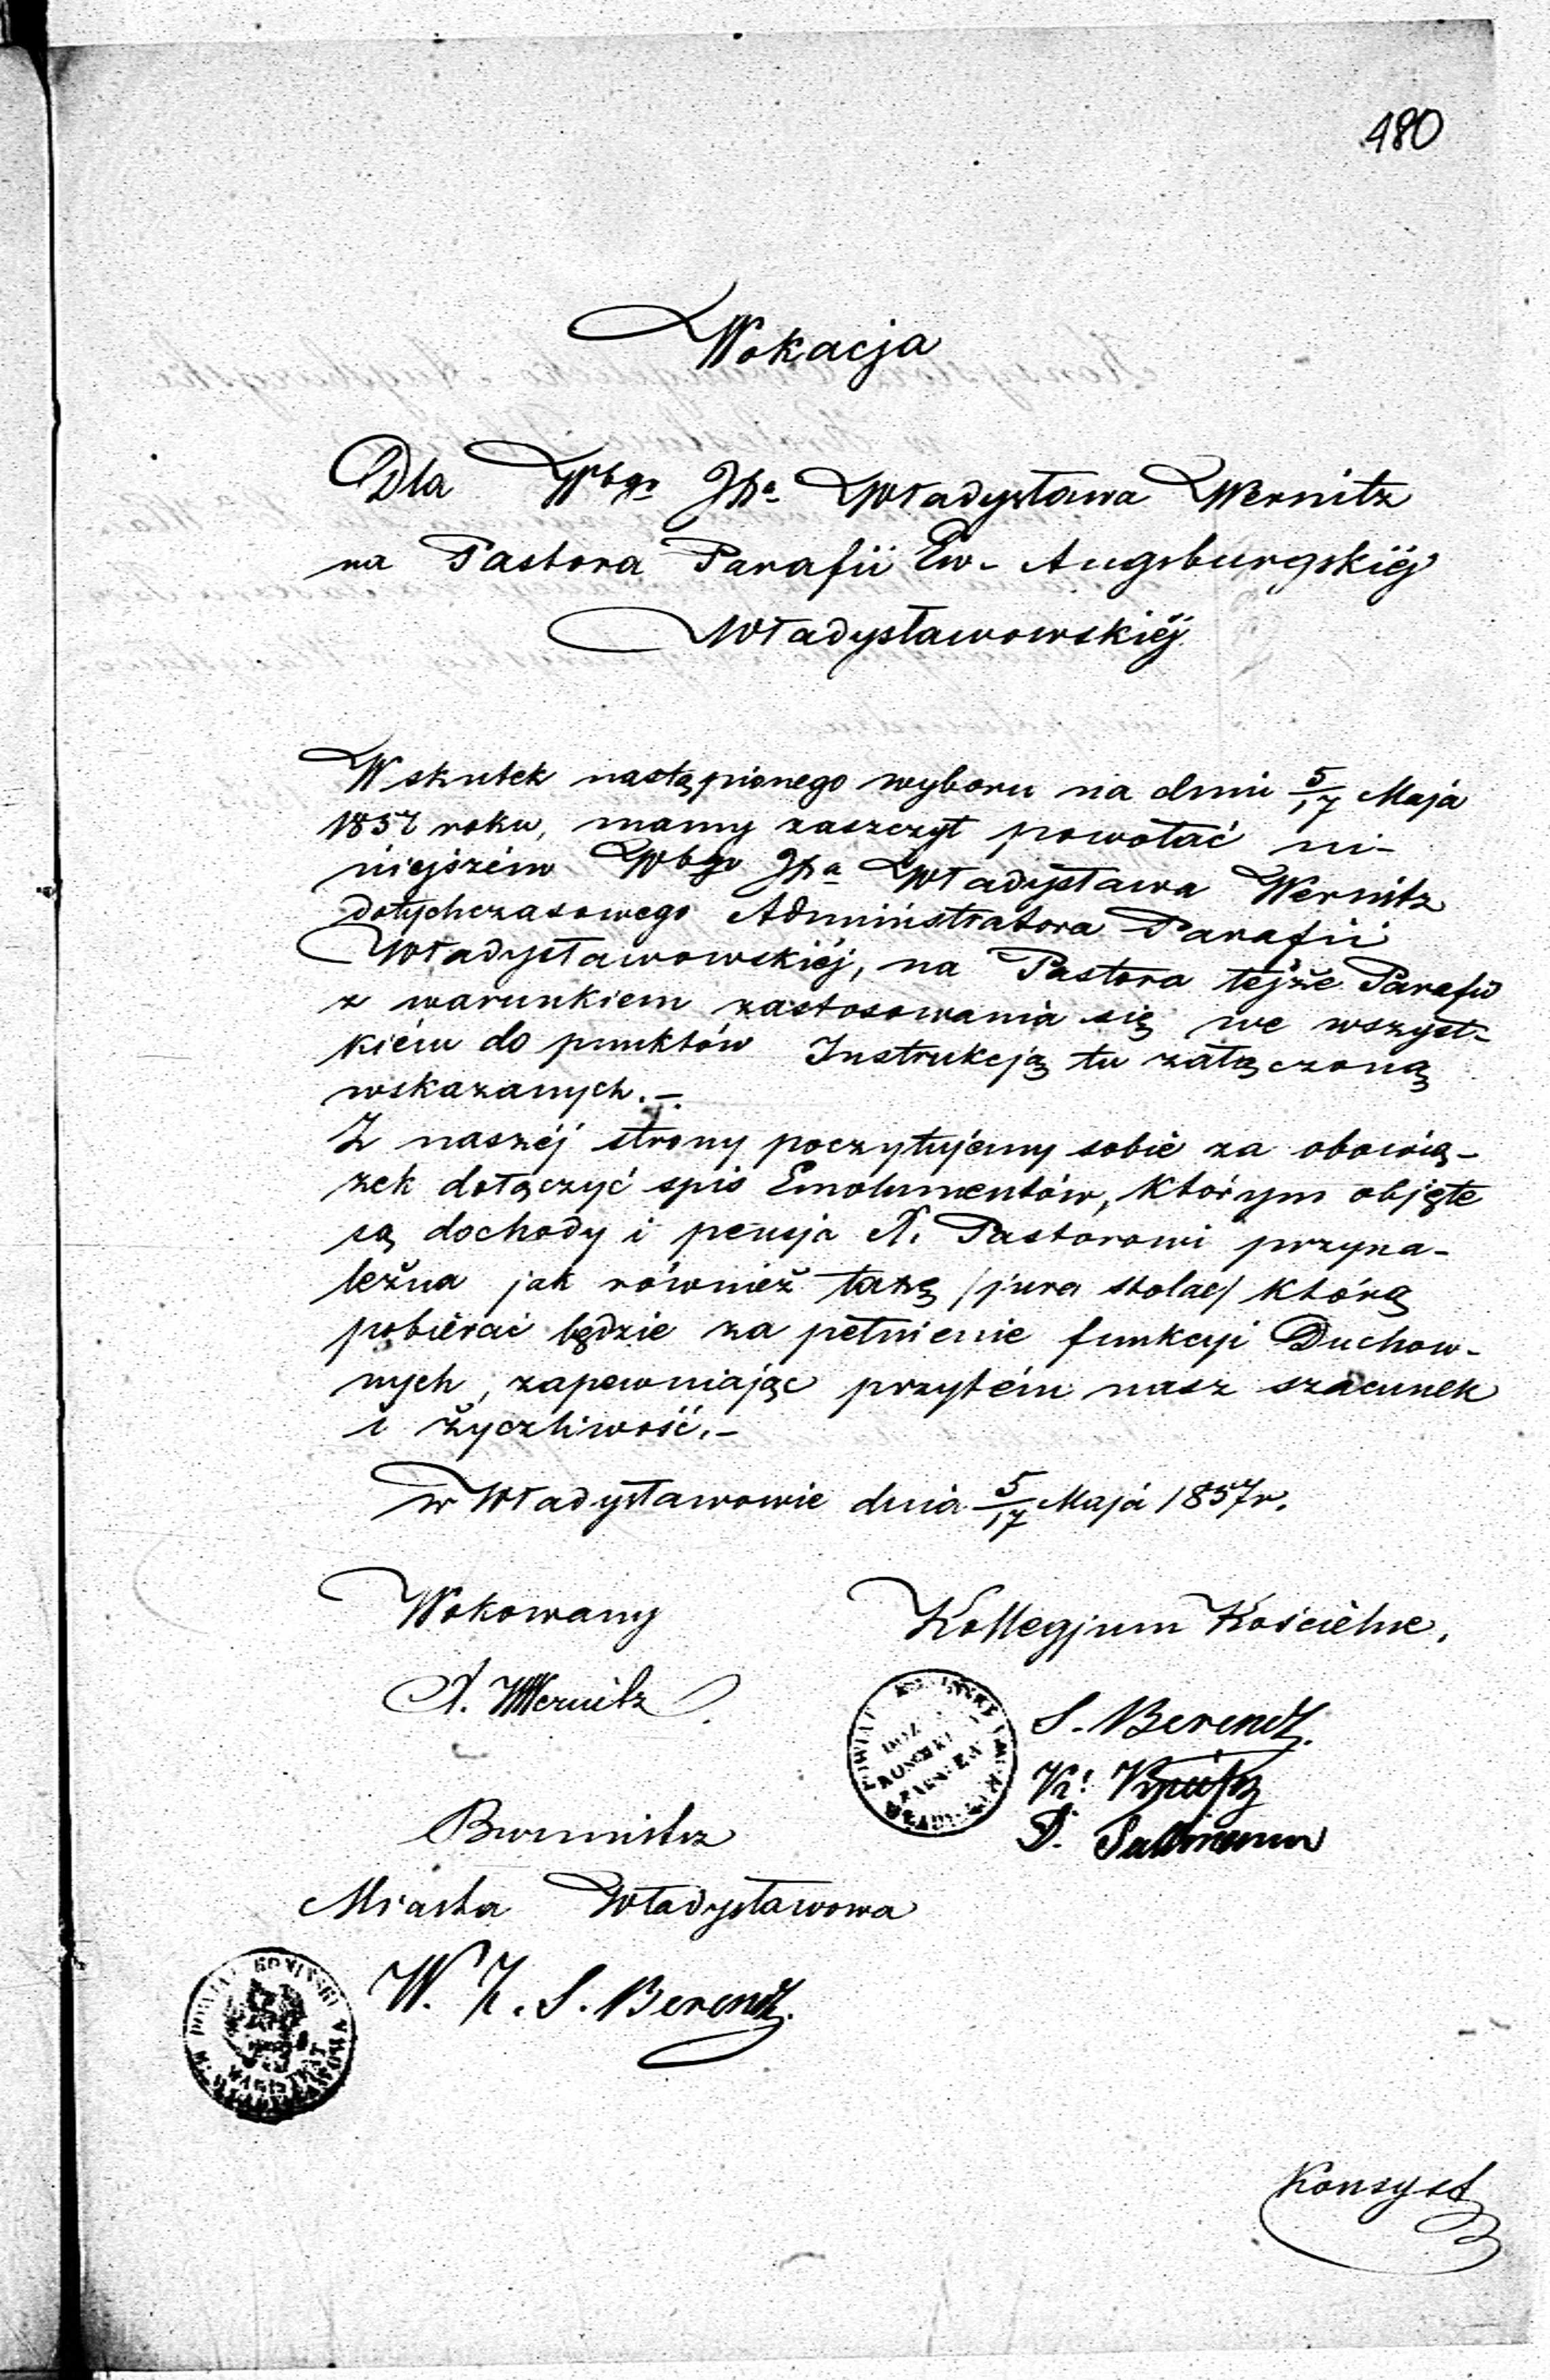 480
Wokacja
Dla Wbgo JPa Władysława Wernitz
na Pastora Parafii Ew- Augsburgskiéj
Władysławowskiéj
W skutek nastąpionego wyboru na dniu 5/17 Maja
1857 roku, mamy zaszczyt powołać ni-
niejszém Wbgo JPa Władysława Wernitz
dotychczasowego Administratora Parafii
Władysławowskiéj, na Pastora tejże Parafii
z warunkiem zastosowania się we wszyst-
kiém do punktów Instrukcją tu załączoną
wskazanych.-
Z naszéj strony poczytujemy sobie za obowią-
zek dołączyć spis Emolumentów, którym objęte
są dochody i pensja N. Pastorowi przyna-
leżna jak również taxę /jura stolae/ którą
pobiérać będzie za pełnienie funkcyi Duchow-
nych, zapewniając przytém nasz szacunek
i życzliwość.-
w Władysławowie dnia 5/17 Maja 1857 r.
Wokowany
Kollegjum Kościelne.
Wernitz
S. Berendt.
Burmistrz
Miasta Władysławowa
W. Z. S. Berendt.
POWIAT KONIŃSKI
MAGISTRAT
Konsyst